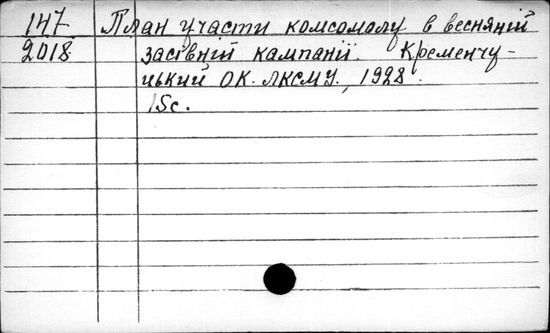 147 План участи комсомолу в весняній
2018 засівній кампанії. Кременчу-
цький ОК. ЛКСМУ, 1928.
15с.